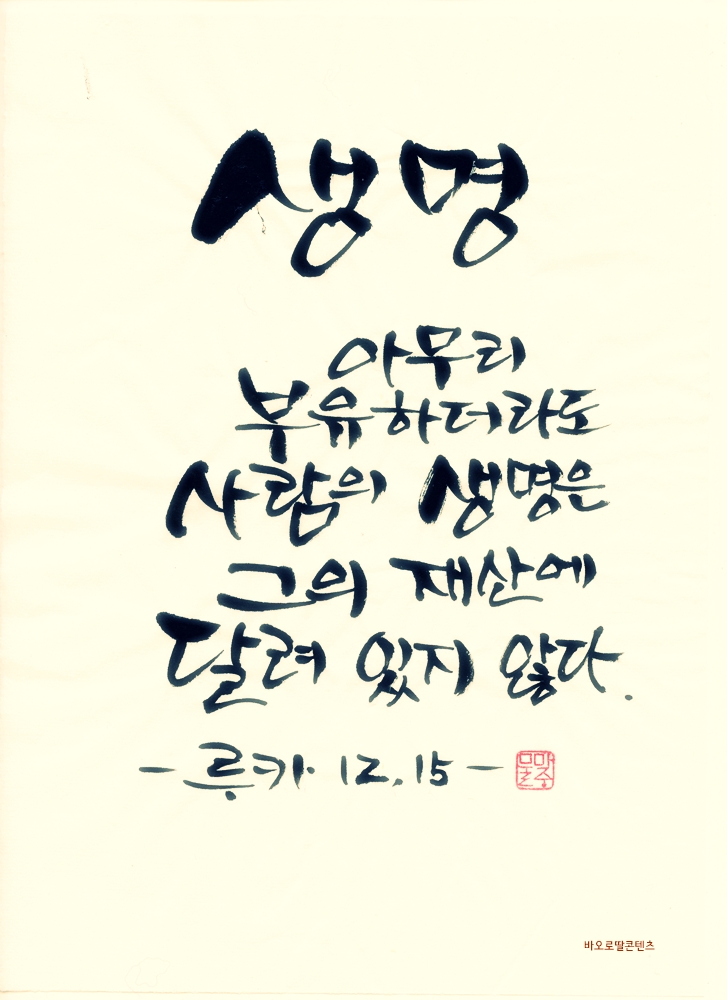 생명
아무리
부유하더라도
사람의 생명은
그의 재산에
달려 있지 않다.
- 루카 12.15 -
바오로딸콘텐츠